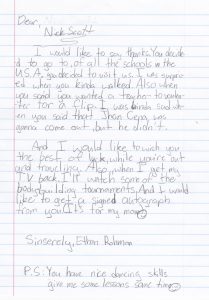 Dear,
Nick Scott
I would like to say thanks. You decide
d to go to, at all the schools in the
U.S.A. you decided to visit us. I was surpri
ed when you kinda walked. Also when
you said you wanted a teacher to
for a flip. I was kinda sad wh
en you said that Jhon Cena was
gonna come out, but he didn't.
And I would like to wich you
the best of luck, while you're out
and traveling. Also, when I get my
T.V. back I'll watch some of the
body building tournaments, And I would
like to get a signed autograph
from you. It's for my mom
Sinserely, Ethan
P.S. You have nice dancing skills
give me some lessons some time